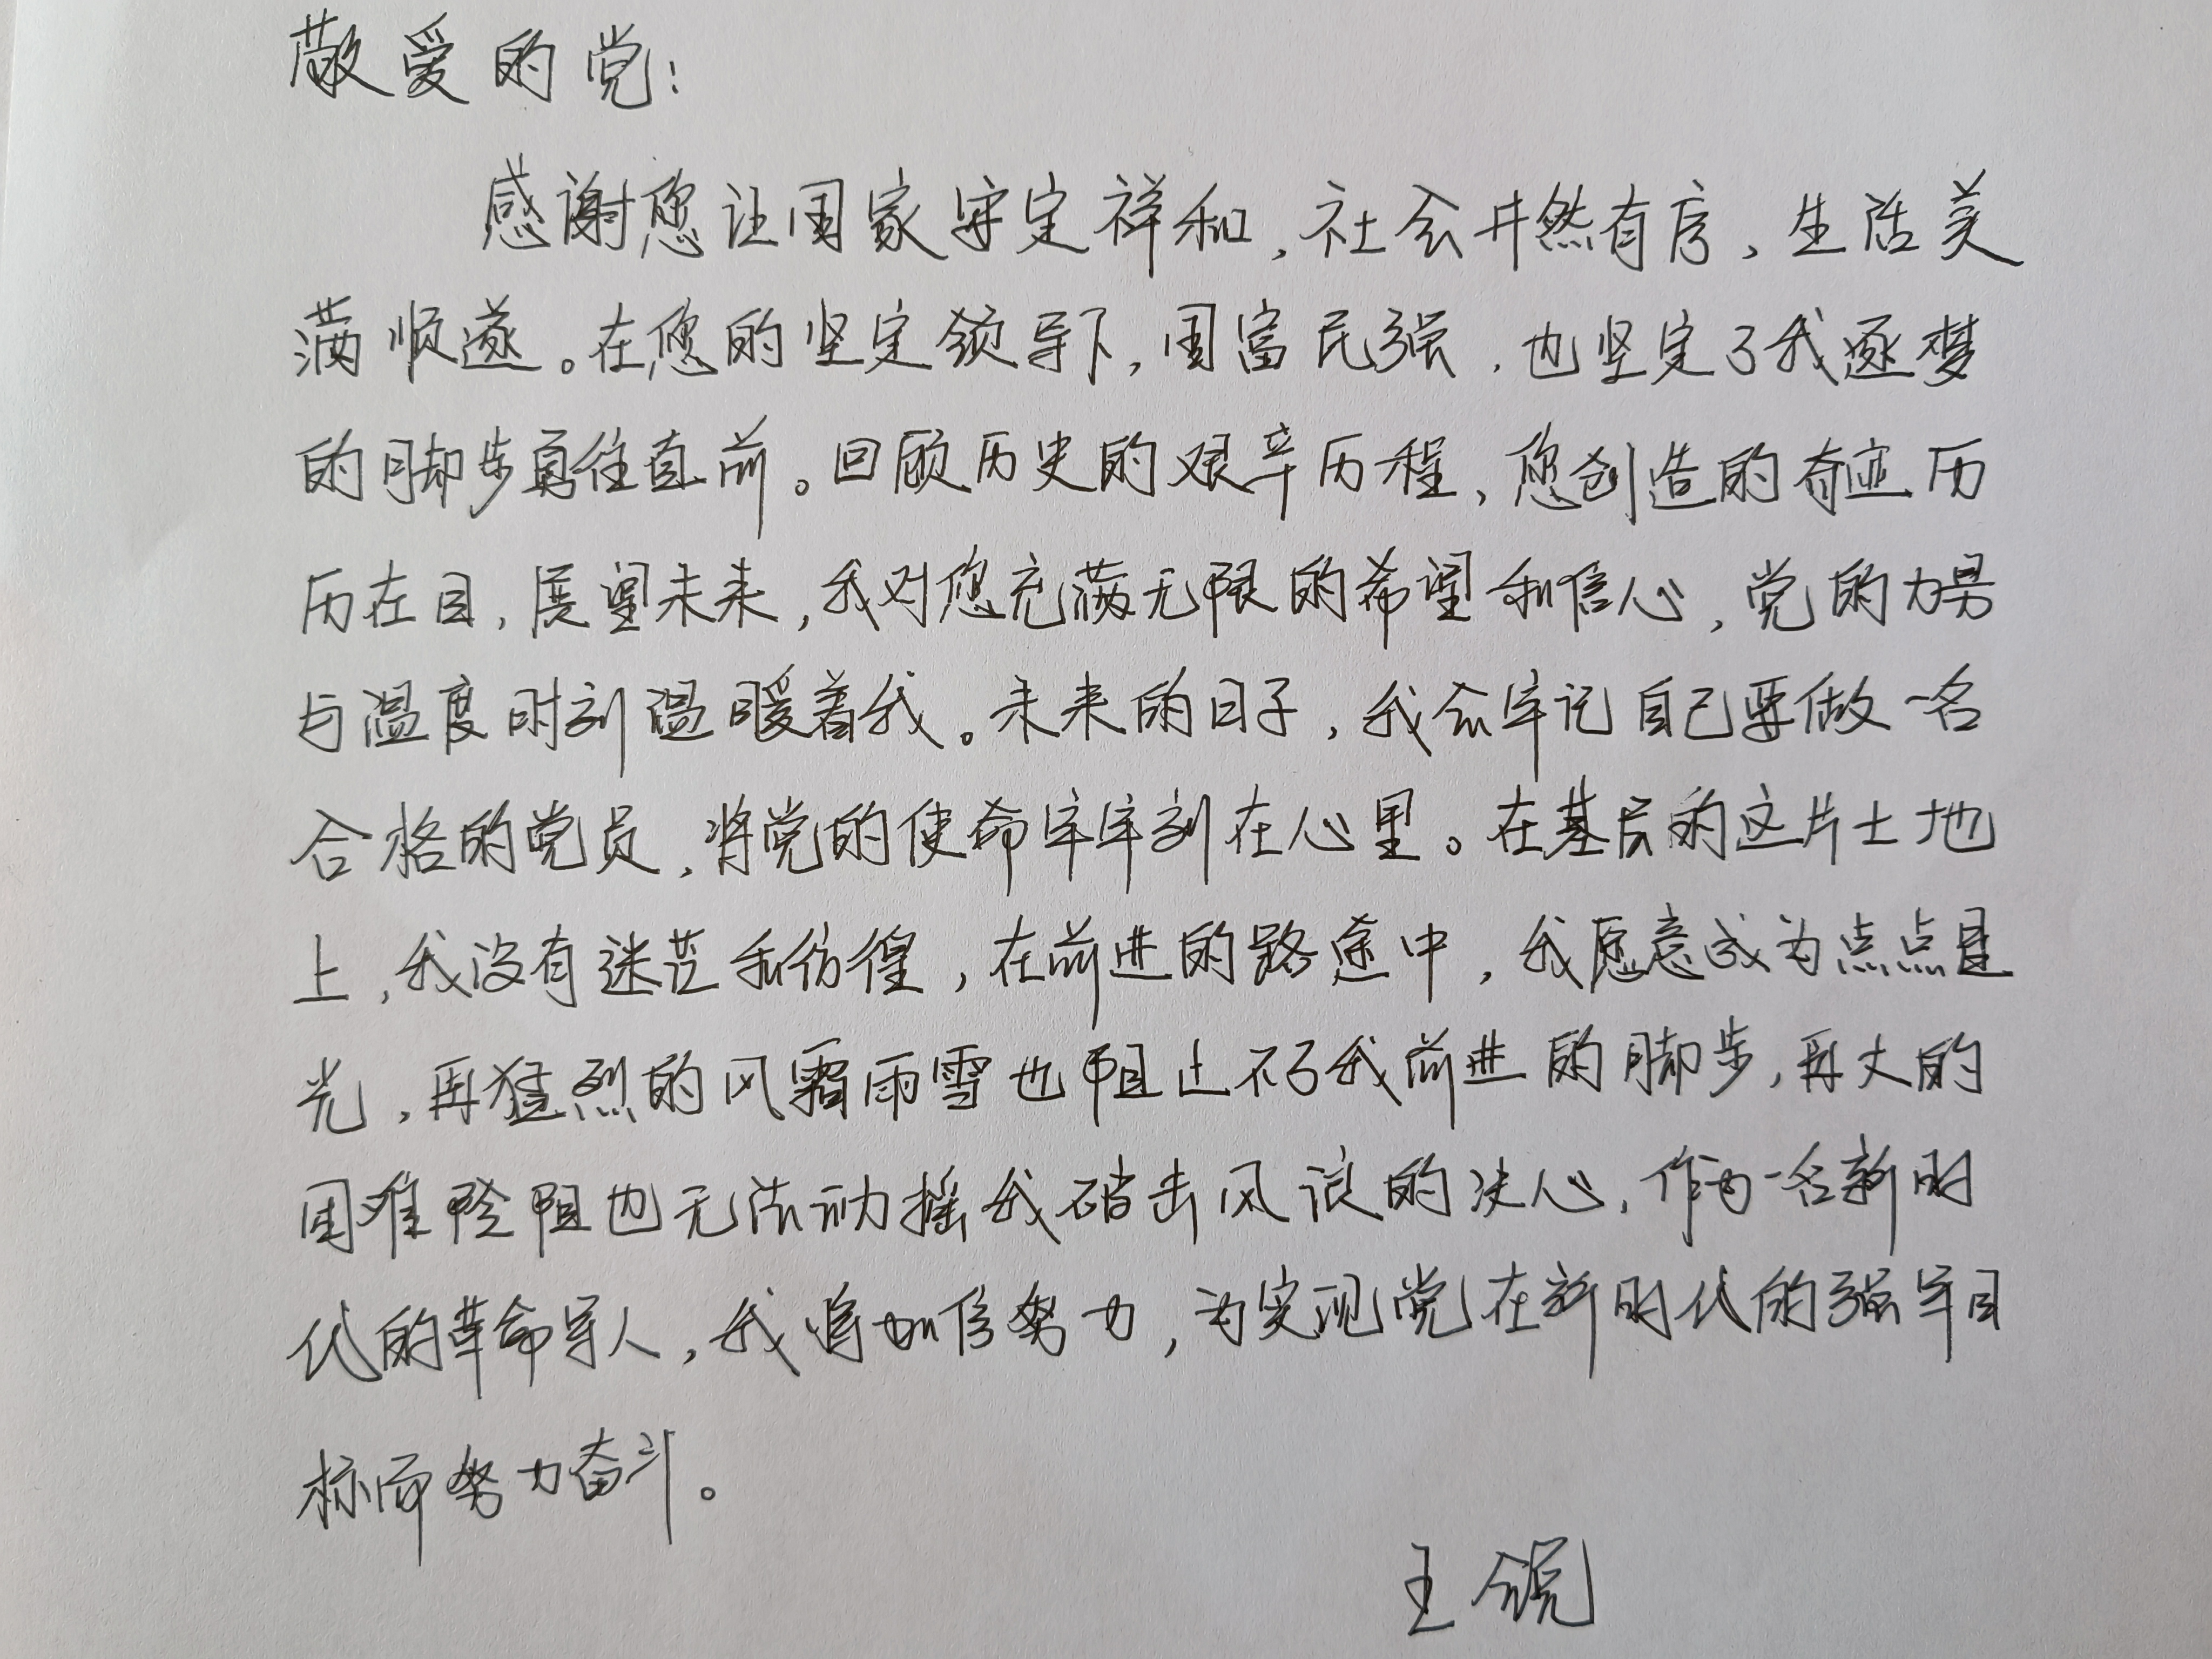 敬爱的党：
感谢您让国家安定祥和，社会井然有序，生活美
满顺遂。在您的坚定领导下，国富民强，也坚定了我逐梦
的脚步勇往直前。回顾历史的艰辛历程，您创造的奇迹历
历在目，展望未来，我对您充满无限的希望和信心，党的力量
与温度时刻温暖着我。未来的日子，我会牢记自己要做一名
合格的党员，将党的使命牢牢刻在心里。在基层的这片土地
上，我没有迷茫和彷徨，在前进的路途中，我愿意成为点点星
光，再猛烈的风霜雨雪也阻止不了我前进的脚步，再大的
困难险阻也无法动摇我破击风浪的决心，作为一名新时
代的革命军人，我将加倍努力，为实现党在新时代的强军目
标而努力奋斗。
王锐